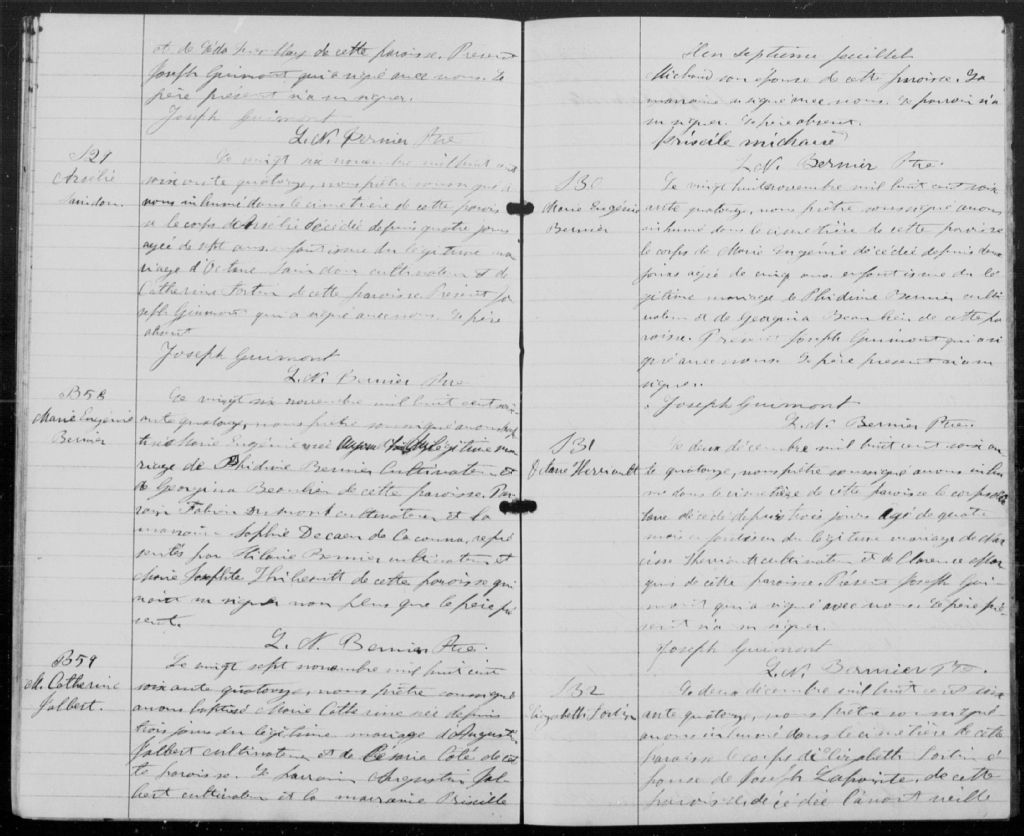 et de Léda St. May de cette paroisse. Présent
Joseph Guimont qui a signé avec nous. Le
père présent n'a su signer.
Joseph Guimont
L. N. Bernier Ptre
S29
Amélie
Saindon.
Le vingt six novembre mil huit cent
soixante quatorze, nous prêtre soussigné a
vons inhumé dans le cimetière de cette parois
se le corps d'Amélie décédée depuis quatre jours
agée de sept ans, enfant issue du légitime ma
riage d'Octave Saindon cultivateur & de
Catherine Fortin de cette paroisse. Présent Jo
seph Guimont qui a signé avec nous. Le père
absent
Joseph Guimont
L. N. Bernier Ptre
B58
Marie Eugénie
Bernier
Le vingt six novembre mil huit cent soix
ante quatorze, nous prêtre soussigné avons bap
tisé Marie Eugénie née légitime ma
riage de Phidime Bernier Cultivateur et
de Georgina Beaulieu de cette paroisse. Par
rain Fabien Dumont cultivateur et la
marraine Sophie Decaen de Cacouna, repré
sentés par Hilaire Bernier cultivateur et
Marie Josephte Thibeault de cette paroisse qui
n'ont su signer non plus que le père pré
sent.
L. N. Bernier Ptre.
B59
M. Catherine
Jalbert.
Le vingt sept novembre mil huit cent
soixante quatorze, nous prêtre soussigné
avons baptisé Marie Catherine née depuis
trois jours du légitime mariage d'Augustin
Jalbert cultivateur et de Cémire Coté de cet
te paroisse. Le parrain Augustin Jal
bert cultivateur et la marraine Priscille
Michaud son épouse de cette paroisse. La
marraine a signé avec nous. Le parrain n'a
su signer. Le père absent.
Priscile michaud
L. N. Bernier Ptre.
S30
Marie Eugénie
Bernier
Le vingt huit novembre mil huit cent soix
ante quatorze, nous prêtre soussigné avons
inhumé dans le cimetière de cette paroisse
le corps de Marie Eugénie décédée depuis deux
jours agée de cinq ans enfant issue du lé
gitime mariage de Phidime Bernier culti
vateur et de Georgina Beaulieu de cette pa
roisse. Présent Joseph Guimont qui a si
gné avec nous. Le père present n'a su
signer.
Joseph Guimont
L. N. Bernier Ptre.
S31
Octave Therriault
Le deux décembre mil huit cent soixan
te quatorze, nous prêtre soussigné avons inhu
mé dans le cimetière de cette paroisse le corps d'Oc
tave décédé depuis trois jours agé de quatre
mois du légitime mariage de Nar
cisse Theriault cultivateur et de Clarence Mar
quis de cette paroisse. Présent Joseph Gui
mont qui a signé avec nous. Le père pré
sent n'a su signer.
Joseph Guimont
L. N. Bernier Ptre.
S32
Elizabeth Fortin
Le deux décembre mil huit cent soix
ante quatorze, nous Prêtre soussigné
avons inhumé dans le cimetière de cette
paroisse le corps d'Elizabeth Fortin é
pouse de Joseph Lapointe, de cette
paroisse, décédée l'avant veille